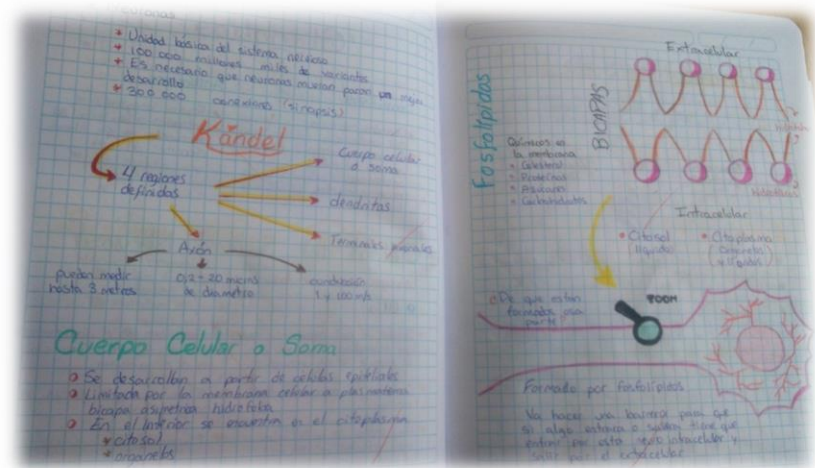 Neuronas
Unidad básica del sistema nervioso
100 000 millones miles de variantes
Es necesario que neuronas mueran para un mejor
desarrollo
300 000 conexiones (sinapsis)
Kandel
4 regiones
definidas
Cuerpo celular
o soma
dendritas
Terminales axonales
Axón
pueden medir
hasta 3 metros
0,2 - 20 micras
de diámetro
conducción
1 y 100 m/s
Cuerpo Celular o Soma
Se desarrollan a partir de células epiteliales
Limitada por la membrana celular o plasmática
bicapa asimétrica hidrófoba
En el interior se encuentra en el citoplasma
citosol
organelos
Fosfolípidos
BICAPAS
Extracelular
Químicos en
la membrana
Colesterol
Proteínas
Azúcares
Carbohidratos
Intracelular
Citosol
líquido
Citoplasma
(organelos
y líquidos)
¿De que están
formados esa
parte?
ZOOM
Formado por fosfolípidos
Va hacer una barrera para que
si algo entrara o saliera tiene que
entrar por esta sería intracelular y
salir por el extracelular